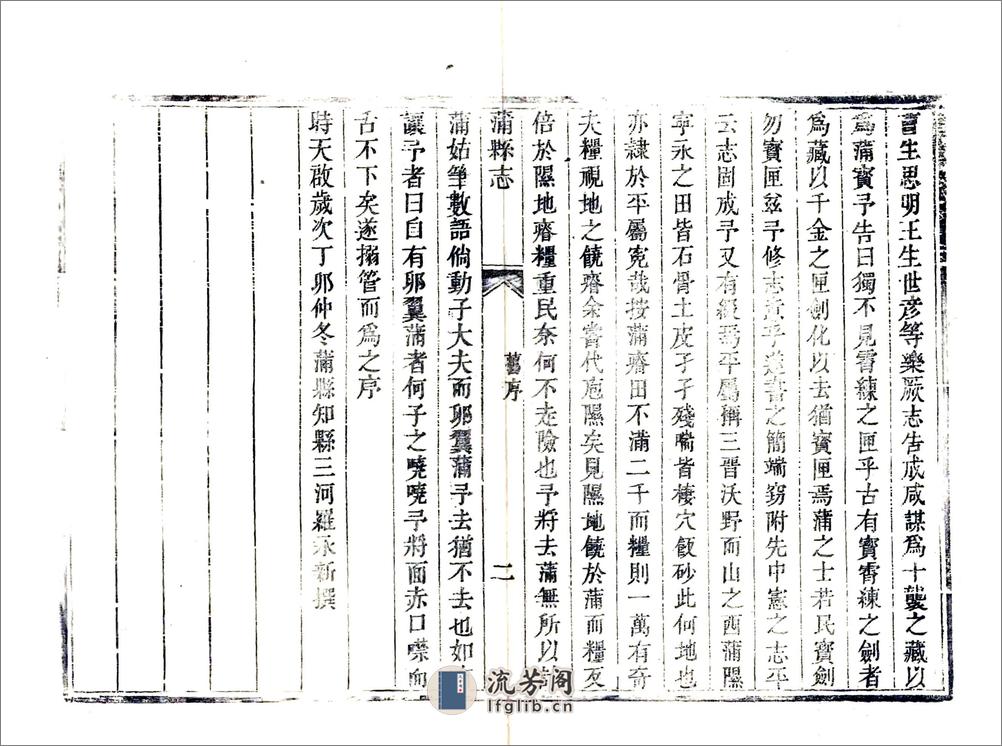 曹生思明王生世彦等樂厥志告成咸謀爲十襲之藏以
爲蒲寳予告曰獨不見霄練之匣乎古有寳霄練之劍者
爲藏以千金之匣劍化以去猶寳匣焉蒲之士若民寳劍
勿寳匣茲予修志責乎遂書之簡端竊附先中憲之志平
云志固成予又有緩焉平屬稱三晋沃野而山之西蒲隰
寧永之田皆石骨土皮孑孑殘喘皆棲穴飯砂此何地也
亦隷於平屬寃哉按蒲瘠田不滿二千而糧則一萬有奇
夫糧視地之饒瘠余嘗代庖隰矣見隰地饒於蒲而糧反
倍於隰地瘠糧重民奈何不走險也予將去蒲無所以
蒲縣志
舊序
二
蒲姑筆數語倘動子大夫而卵翼蒲予去猶不去也如
讓予者曰自有卵翼蒲者何子之嘵嘵予將面赤口噤而
舌不下矣遂搦管而爲之序
時天啟歲次丁卯仲冬蒲縣知縣三河羅永新撰
流芳阁
lfglib.cn